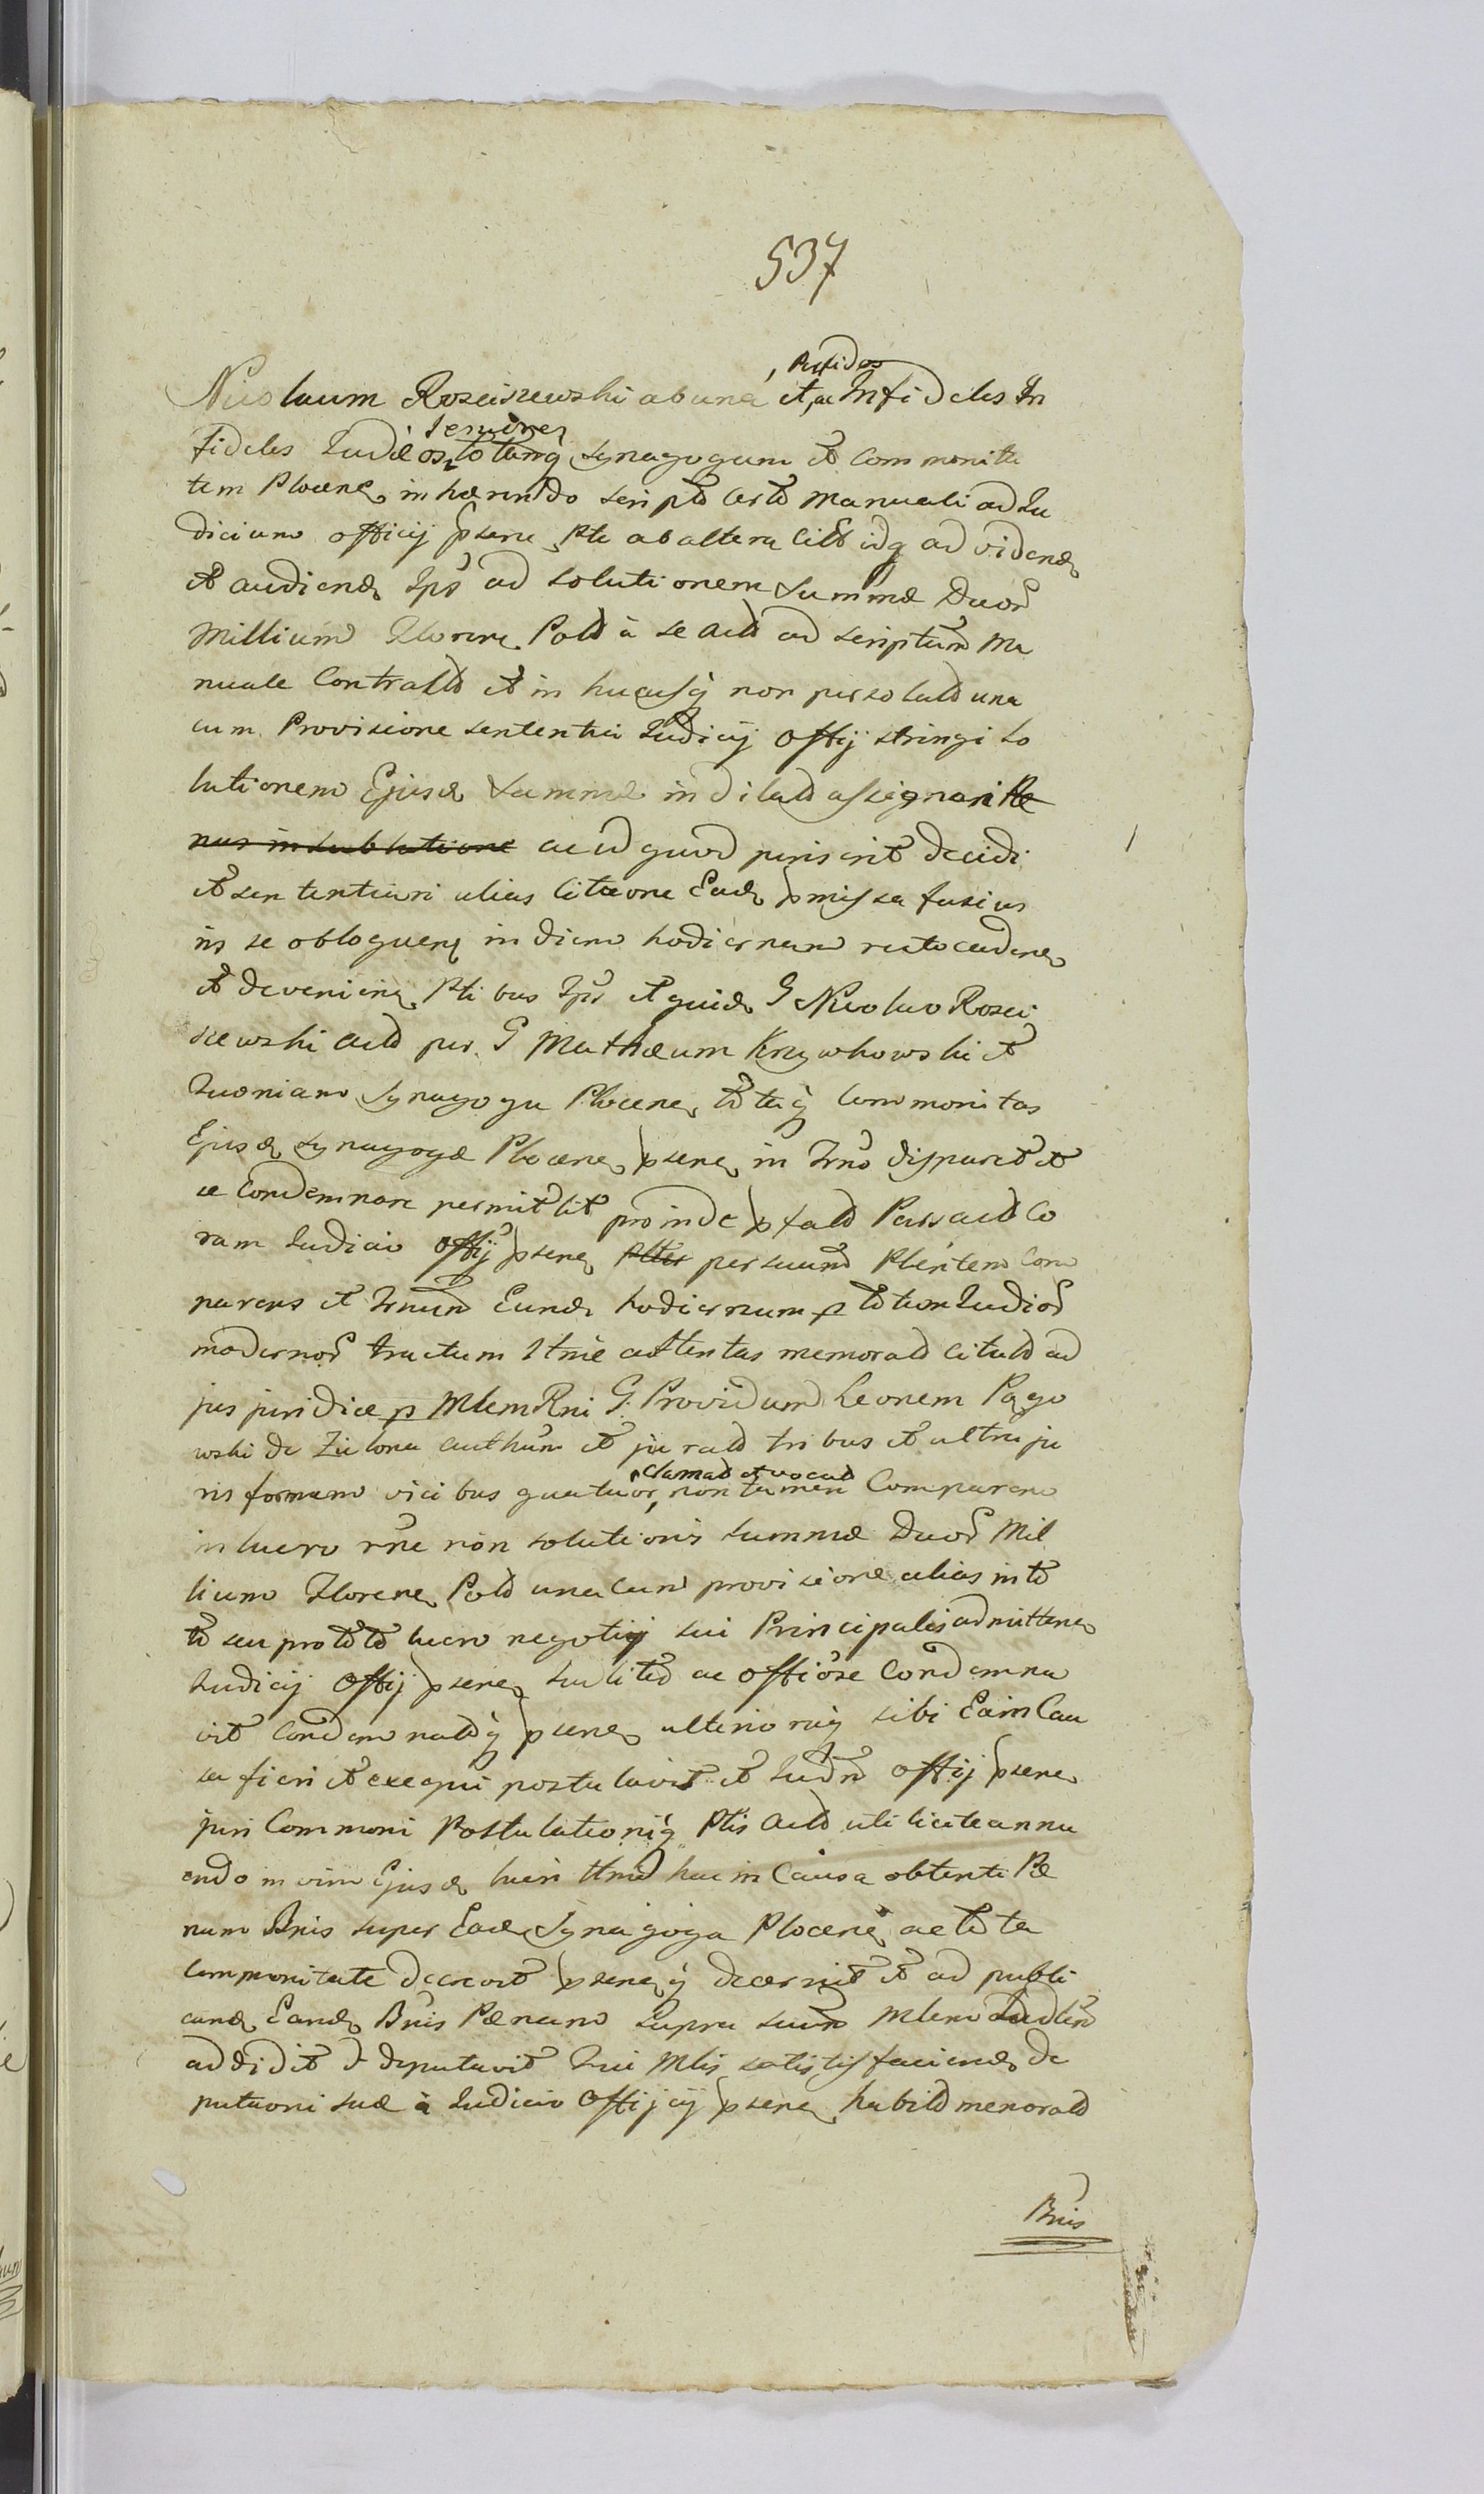 537
Nicolaum Rosciszewski ab una et, ac Perfidos Infideles In
fideles Judæos Seniores totamq Synagogam et Commonita
tem Plocen. inhærendo scripto certo Manuali ad Ju
dicium Officij psens Pte ab altera Citt idq ad videnð
et audienð Ips ad solutionem Summæ Duor
Millium Floren. Pold à se actð ad scriptum Ma
nuale Contractð et in hucusq non persolutð una
cum Provisione sententia Judicij Offij stringi so
lutionem Ejusð Summæ indilatð assignari Ple
nus in sublatione ac id quod juris erit decidi
et sententiari alias Citaone Eadð pmissa fusius
in se obloquenð in diem hodiernum recto cadenð
et devenienð Ptibus Ips et quidð G Nicolao Rosci
szewski Actð per G Mathæum Krzywkowski et
Quoniam Synagoga Plocenð totaq Commonitas
Ejusð Synagogæ Plocenð psenð in Trno disparet et
se Condemnare permittit proinde pfatð Pars actð Co
ram Judicio Offij psenð per suum Plentem Com
parens et Trnum Eundð hodiernum p totum Judior
modernor tractum Stnie attentas memoratð citatð ad
jus juridice p Mlem Rni G. Providum Leonem Pągo
wski de Zielona authum et juratð tribus et ultra ju
ris formam vicibus quatuor, clamatð et vocatð non tamen Comparen
in lucro rne non solutionis summæ Duor Mil
lium Florenð Pold una cum provisione alias in to
to seu pro toto lucro negotij sui Principalis admittenð
Judicij Offij psenð Judlited ac Offiose Condemna
vit Condemnatðq psenð ulteriorą sibi Ea in Cau
sa fieri et exequi postulavit et Judm Offij psenð
juri Commoni Postulationiq Ptis Actð uti licite annu
endo in vim Ejusð lucri ttmd hac in Causa obtenti Pæ
nam Bnis super Eadð Synagoga Plocenð ac tota
Commonitate decrevit psenðq decernit et ad publi
candð Eandð Bnis Pænam supra suum Mlem Judlem
addidit & deputavit Qui Mlis satis tisfaciendð de
putaoni suæ à Judicio Offijcij psenð habitð memoratð
Bnis